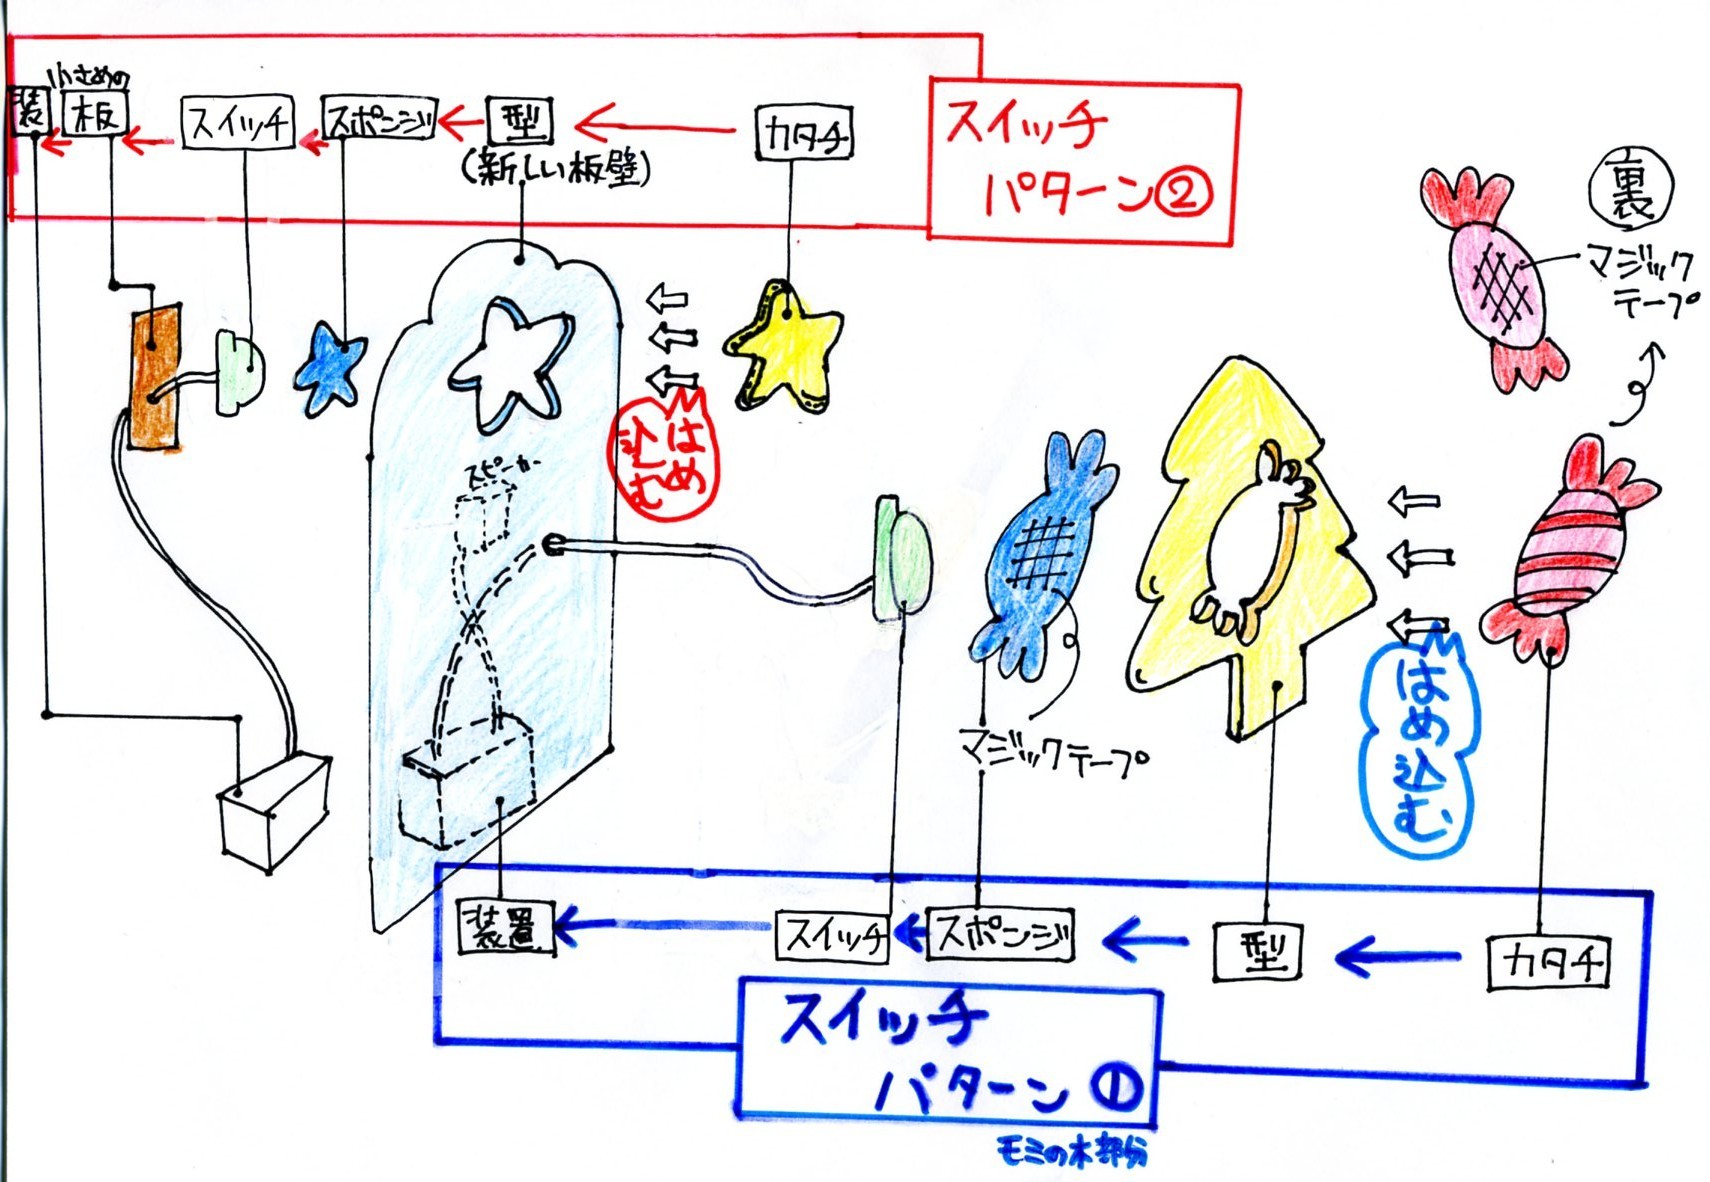 小さめの
装
板
スイッチ
スポンジ
型
(新しい板壁)
カタチ
スイッチ
パターン②
裏
マジック
テープ
はめ
込む
スピーカー
マジックテープ
はめ込む
装置
スイッチ
スポンジ
型
カタチ
スイッチ
パターン①
モミの木部分